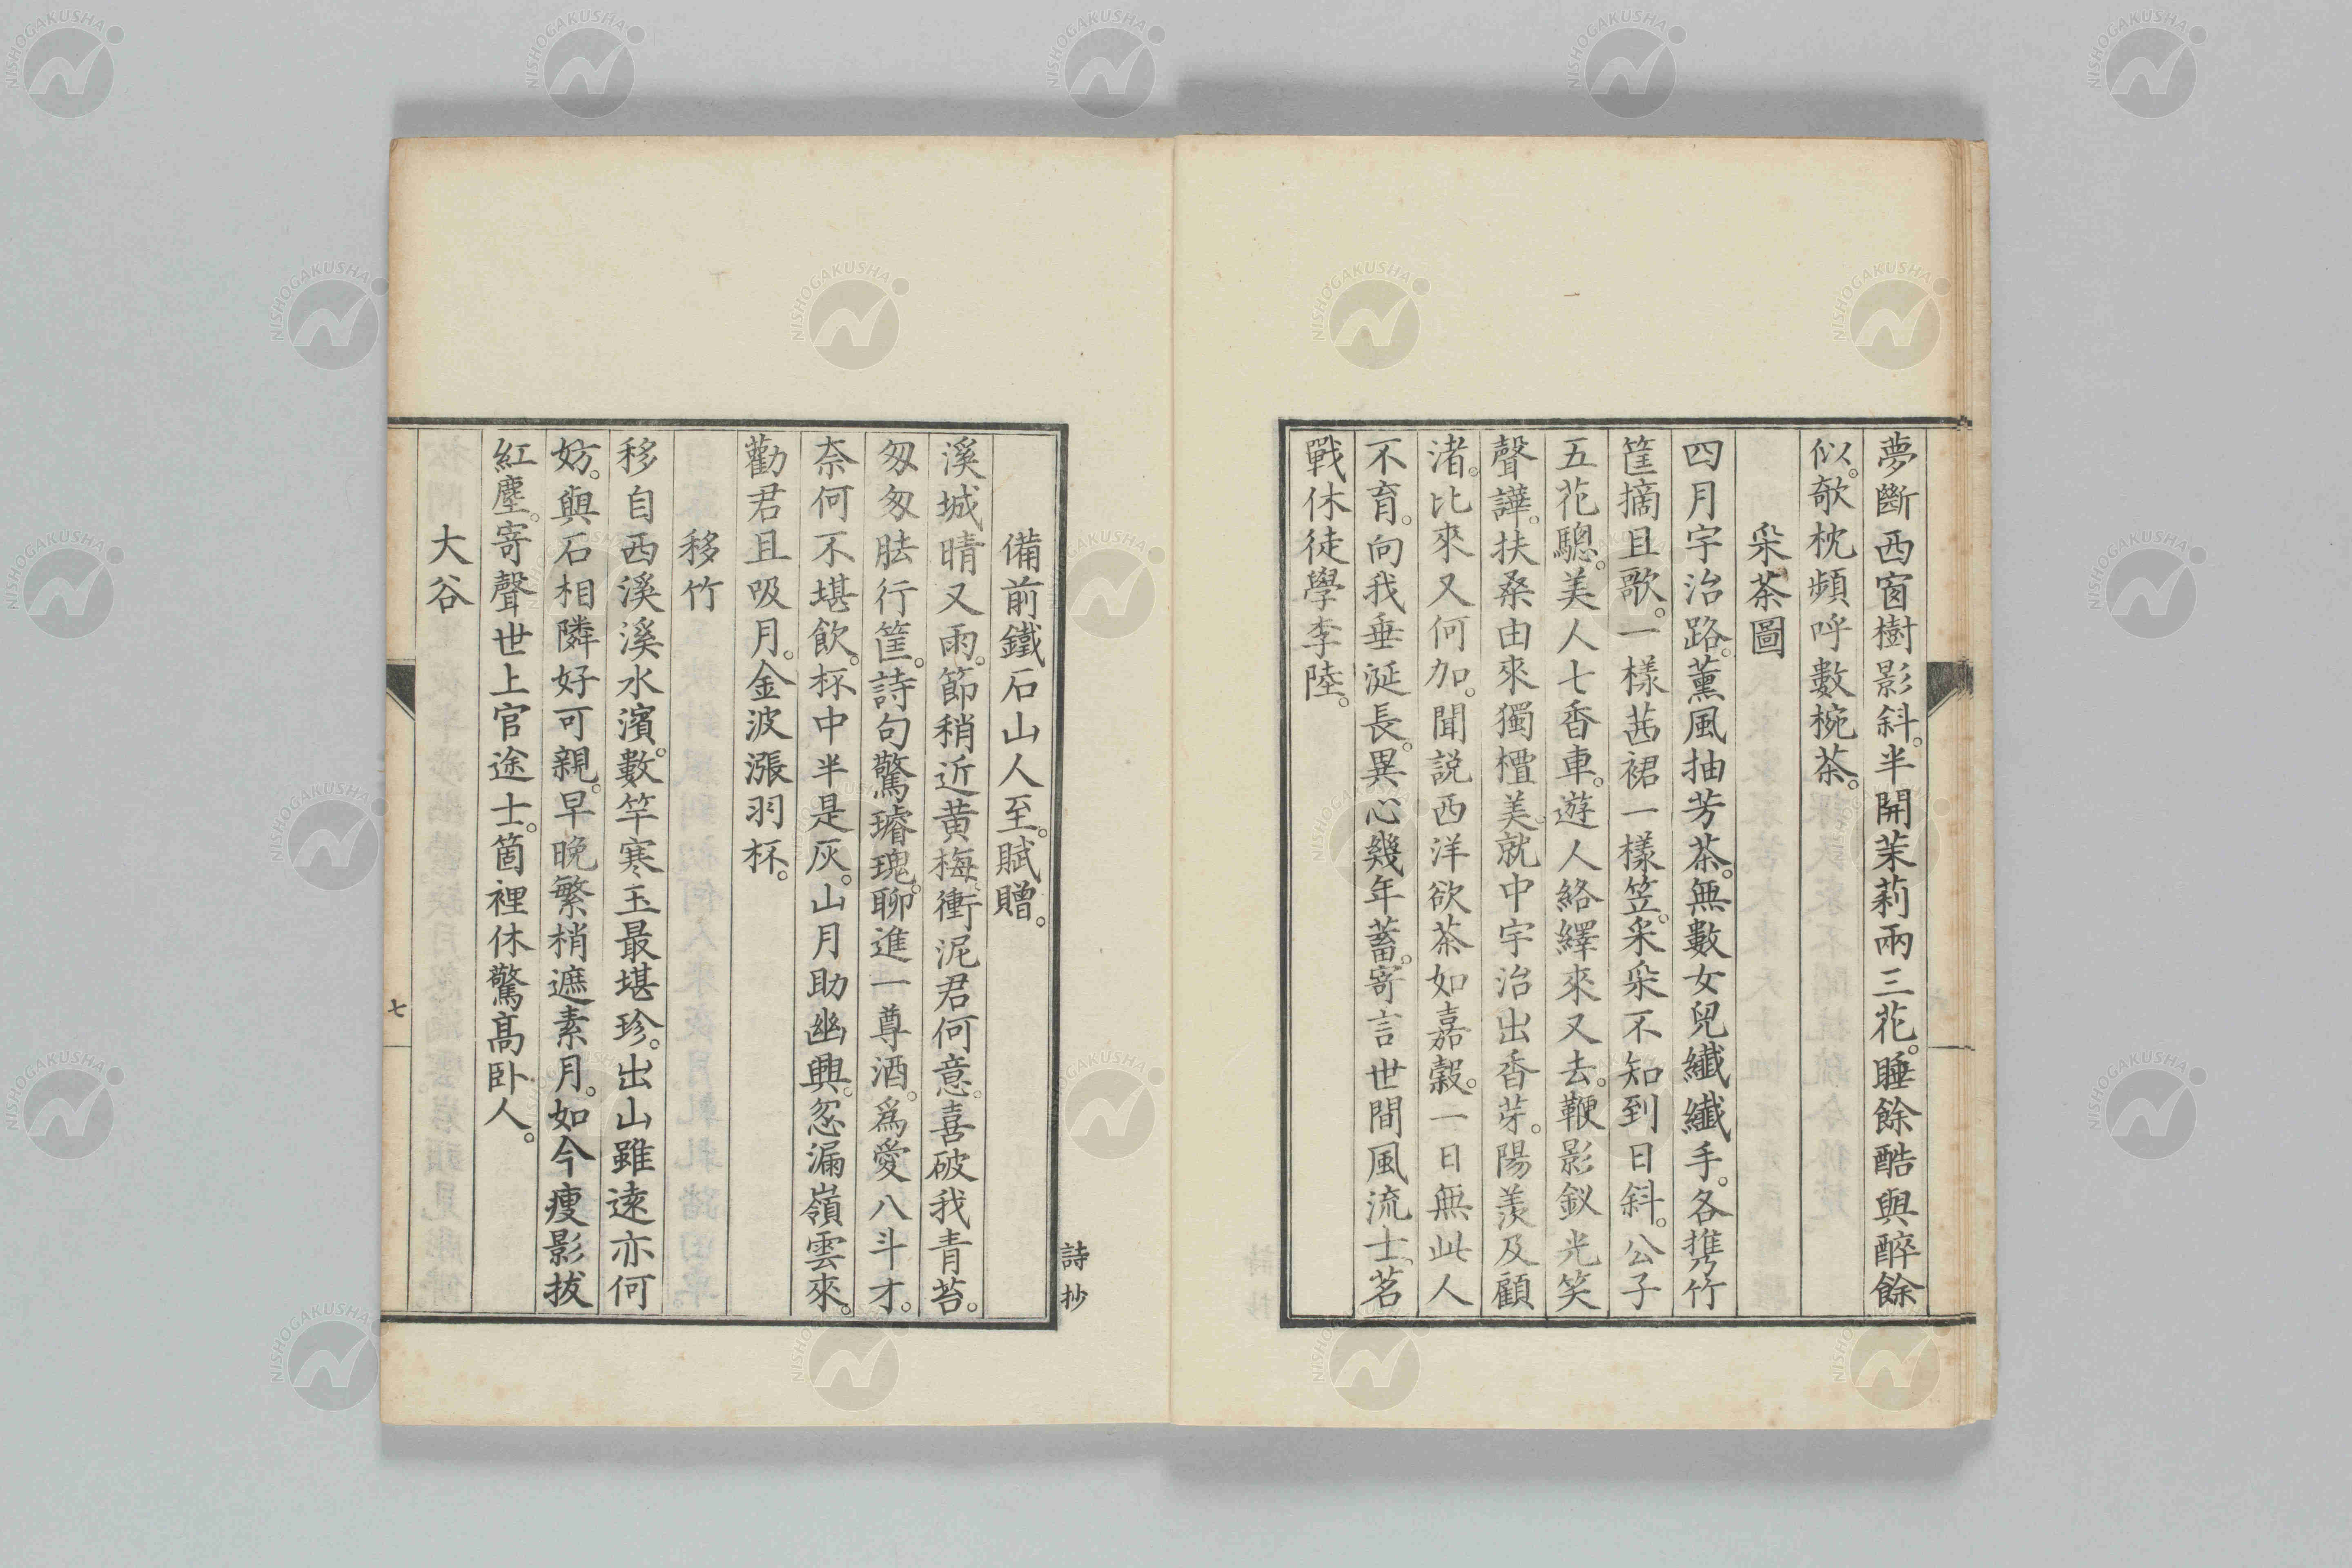 夢斷西窗樹影斜。半開茉莉兩三花。睡餘酷與醉餘
似。欹枕頻呼數椀茶。
采茶圖
四月宇治路。薰風抽芳茶。無數女兒纖纖手。各携竹
筐摘且歌。一樣茜裙一樣笠。采采不知到日斜。公子
五花驄。美人七香車。遊人絡繹來又去。鞭影釵光笑
聲譁。扶桑由來獨檀美。就中宇治出香芽。陽羨及顧
渚。比來又何加。聞説西洋欲茶如嘉穀。一日無此人
不育。向我垂涎長。異心幾年蓄。寄言世間風流士。茗
戰休徒學李陸。
備前鐵石山人至。賦贈。
溪城晴又雨。節稍近黄梅。衝泥君何意。喜破我青苔。
匆匆胠行筐。詩句驚璿瑰。聊進一尊酒。爲愛八斗才。
奈何不堪飮。杯中半是灰。山月助幽興。忽漏嶺雲來。
勸君且吸月。金波漲羽杯。
移竹
移自西溪溪水濱。數竿寒玉最堪珍。出山雖遠亦何
妨。與石相隣好可親。早晩繁梢遮素月。如今瘦影拔
紅塵。寄聲世上官途士。箇裡休驚高卧人。
大谷
詩抄
七
NISHOGAKUSHA